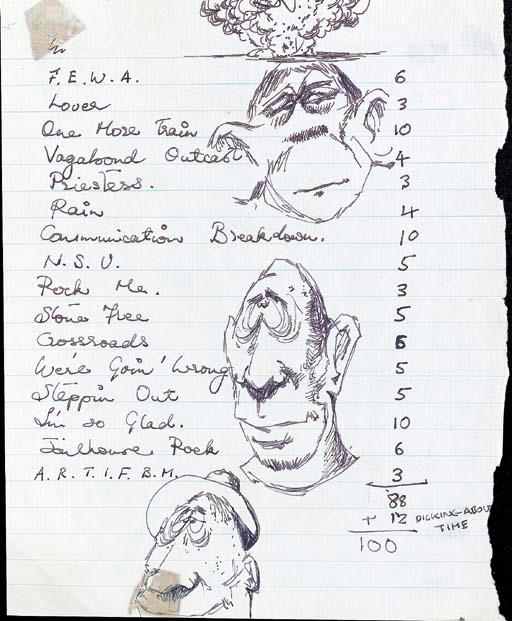 F.E.W.A. 6
Lover 3
One More Train 10
Vagabound Outcast 4
Priestess. 3
Rain 4
Communication Breakdown. 10
N.S.U. 5
Rock Me. 3
Stone Free 5
Crossroads 6
We're Goin' Wrong 5
Steppin Out 5
I'm so Glad. 10
Jailhouse Rock 6
A.R.T.I.F.B.M. 3
88
+ 12 DICKING-ABOUT
TIME
100